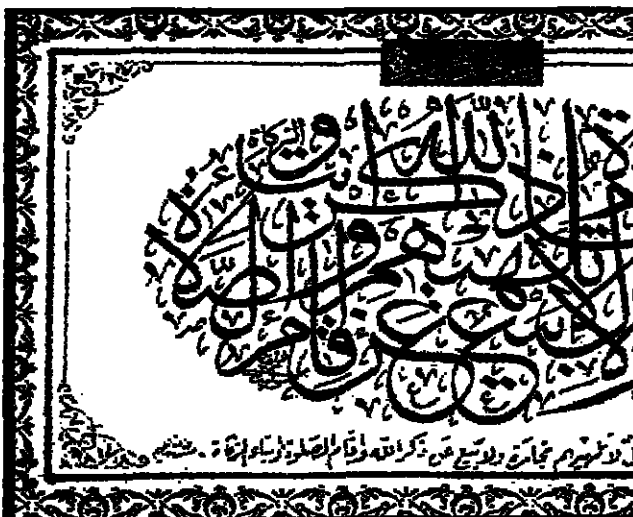 تلهيهم ولا بيع عن ذكر الله وإقام الصلاة وإيتاء الزكاة
لا تلهيهم تجارة ولا بيع عن ذكر الله وإقام الصلوة وإيتاء الزكاة .